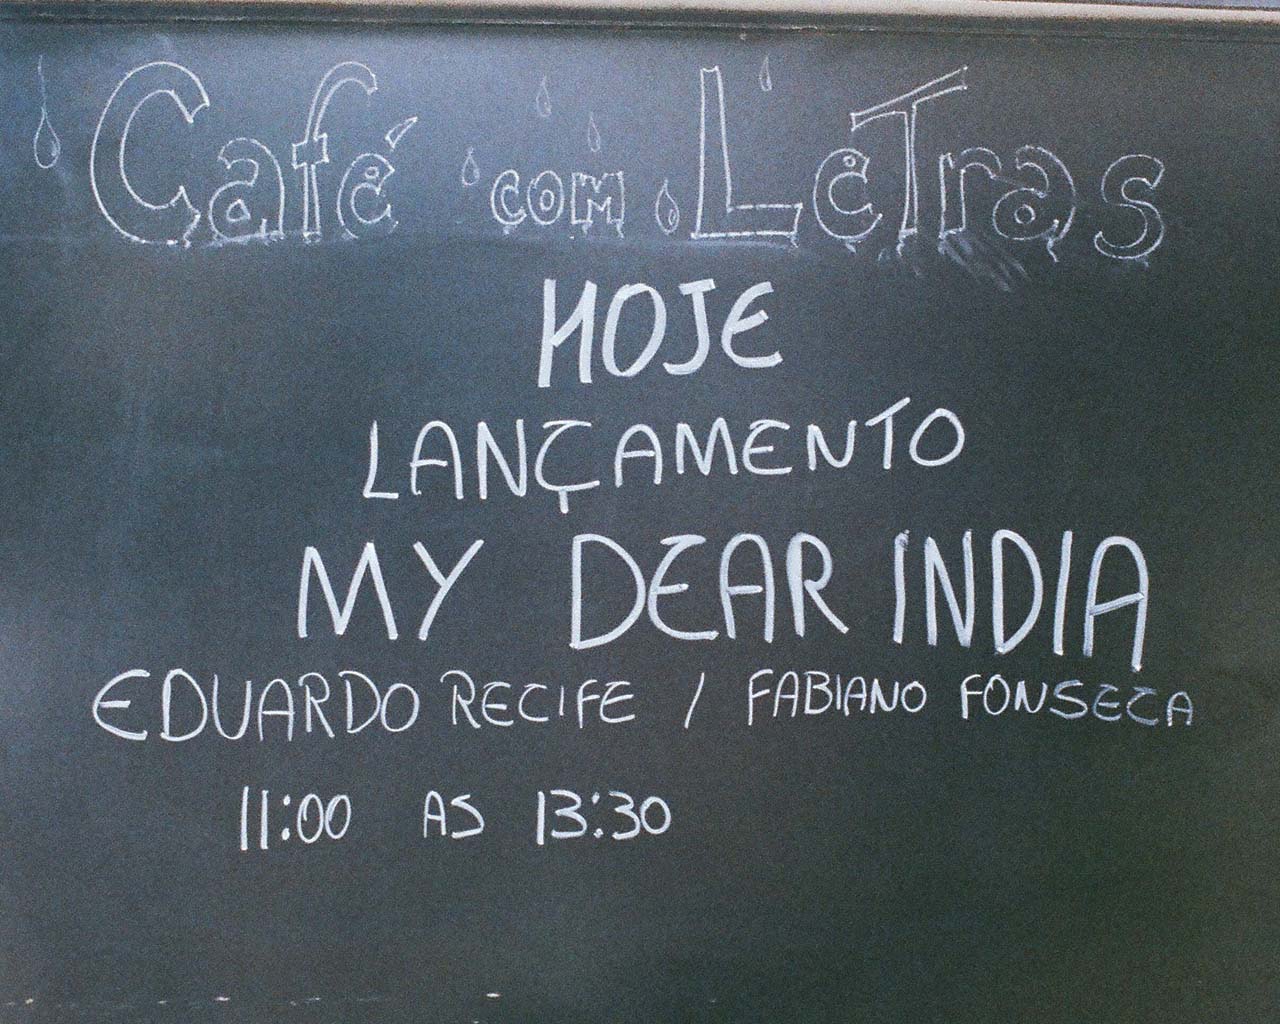 Café com Letras
HOJE
LANÇAMENTO
MY DEAR INDIA
EDUARDO RECIFE / FABIANO FONSECA
11:00 AS 13:30